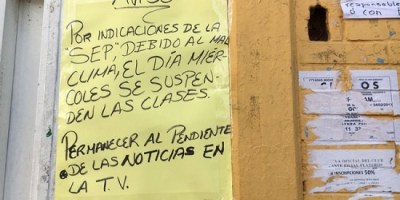 AVISO
POR INDICACIONES DE LA
"SEP", DEBIDO AL MAL
CLIMA, EL DÍA MIÉR-
COLES SE SUSPEN-
DEN LAS CLASES.
PERMANECER AL PENDIENTE
DE LAS NOTICIAS EN
LA T.V.
responsable
ó con
OS
INSCRIPCIONES 50%